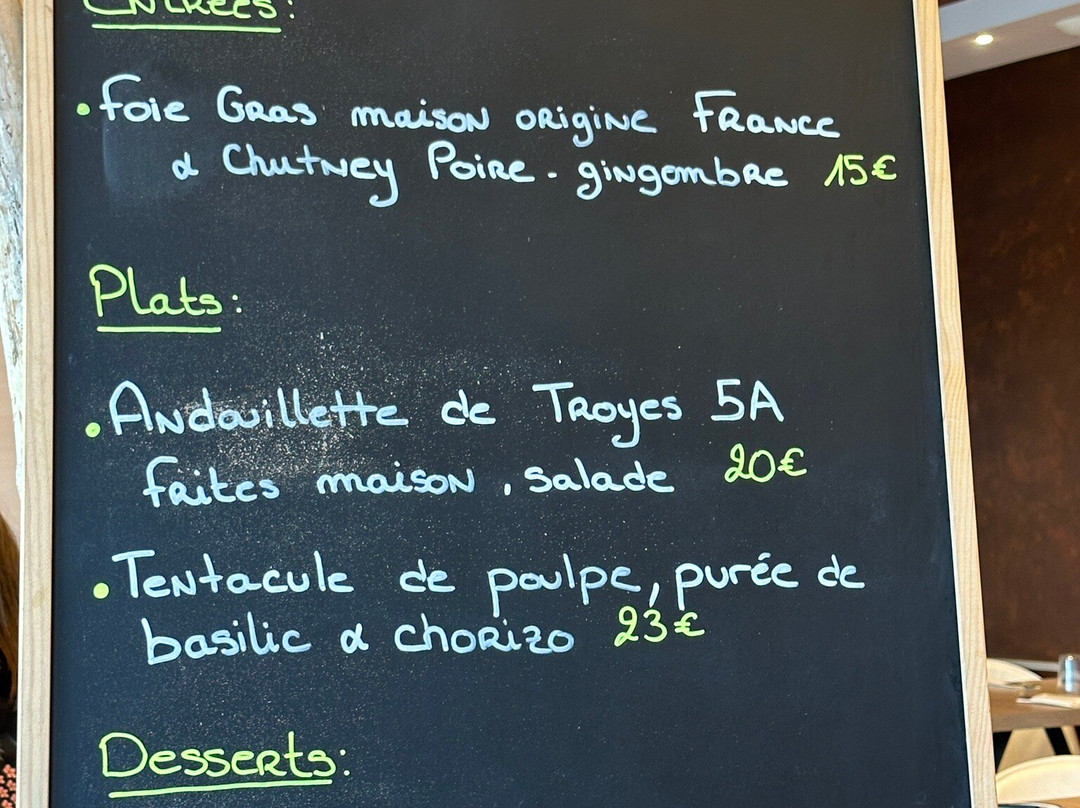 Entrées:
• Foie Gras maison origine France
& Chutney Poire - gingembre 15€
Plats:
• Andouillette de Troyes 5A
frites maison, salade 20€
• Tentacule de poulpe, purée de
basilic & chorizo 23€
Desserts: